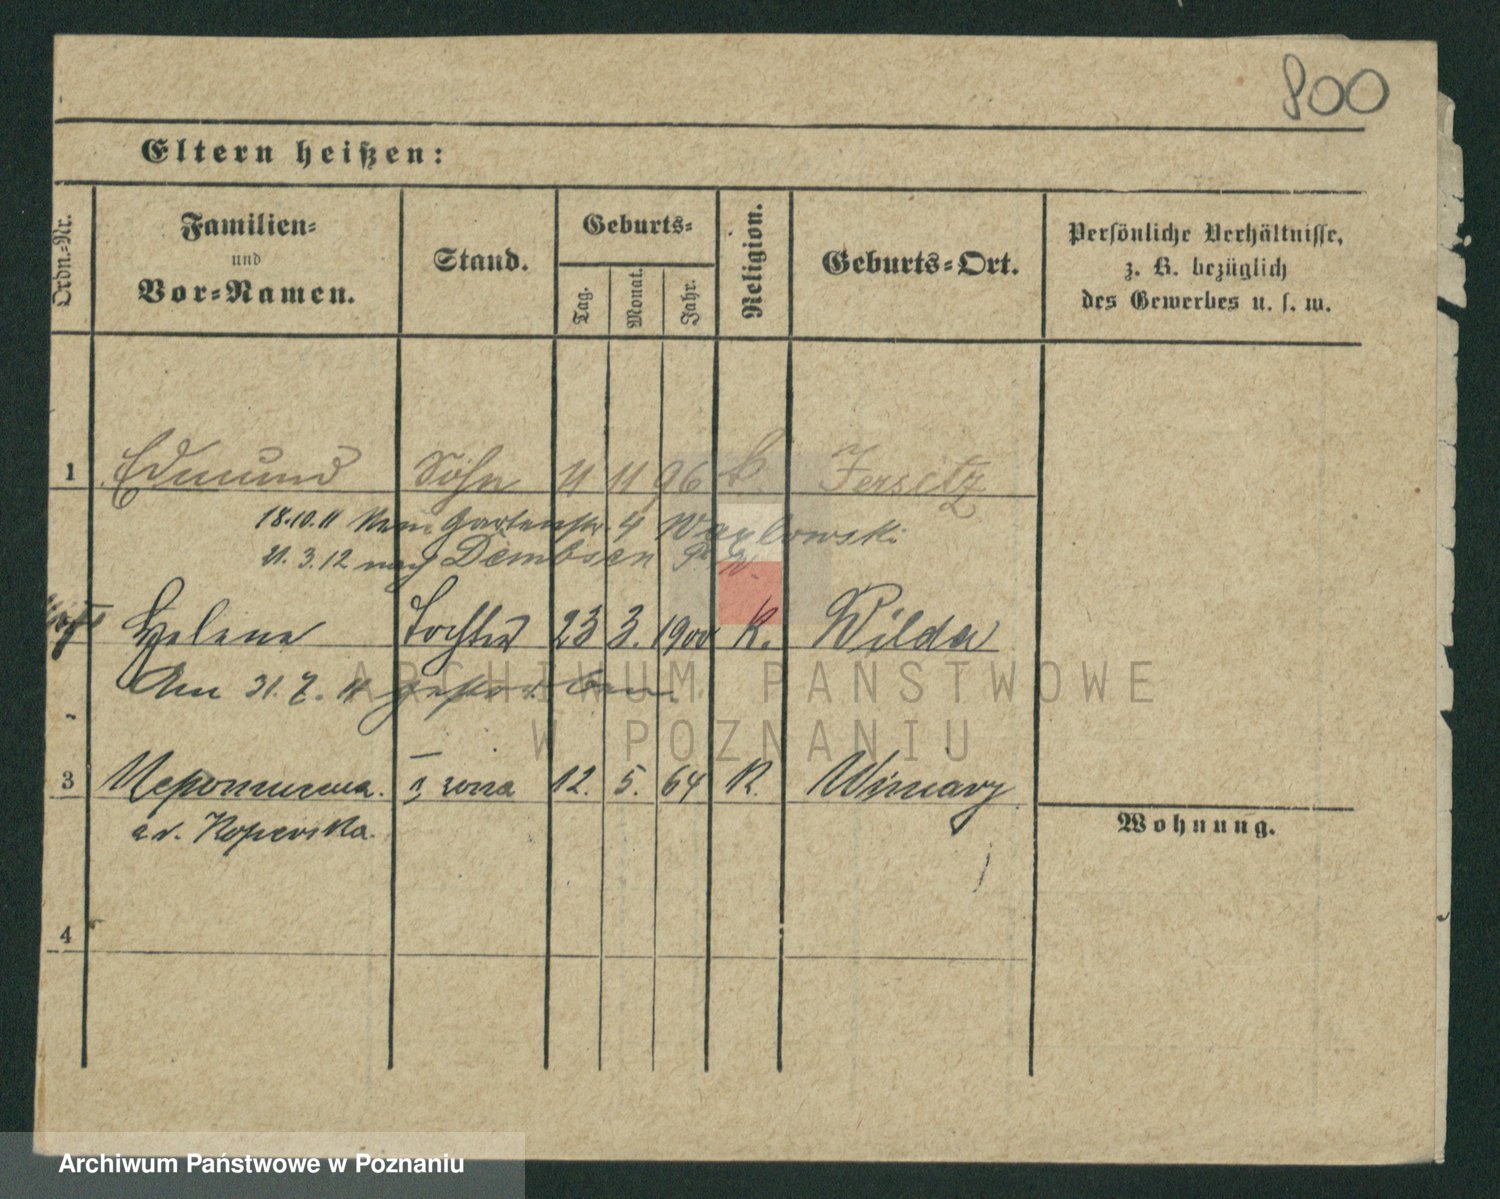 800
Eltern heißen:
Ordn.-Nr.
Familien-
und
Vor-Namen.
Stand.
Geburts-
Tag.
Monat.
Jahr.
Religion.
Geburts-Ort.
Persönliche Verhältnisse,
z. B. bezüglich
des Gewerbes u. s. w.
1 Edmund Sohn 11 11 96 k. Jersitz
18.10.11 Gartenstr. 4
21.3.12 nach Dembsen
Helene Tochter 23 3. 1900 K. Wilda
Am 31.7.11 gestorben
3 Nepomucena. I żona 12. 5. 64 K. Winiary
Koperska.
4
Wohnung.
ARCHIWUM PAŃSTWOWE
W POZNANIU
Archiwum Państwowe w Poznaniu